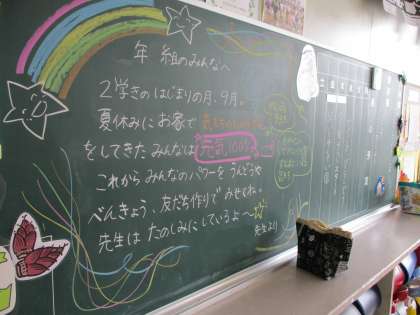 年 組のみんなへ
2学きのはじまりの月、9月。
夏休みにお家で
をしてきたみんなは 元気100%
これからみんなのパワーをうんどうや
べんきょう、友だち作りでみせてね。
先生はたのしみにしているよ〜
先生より